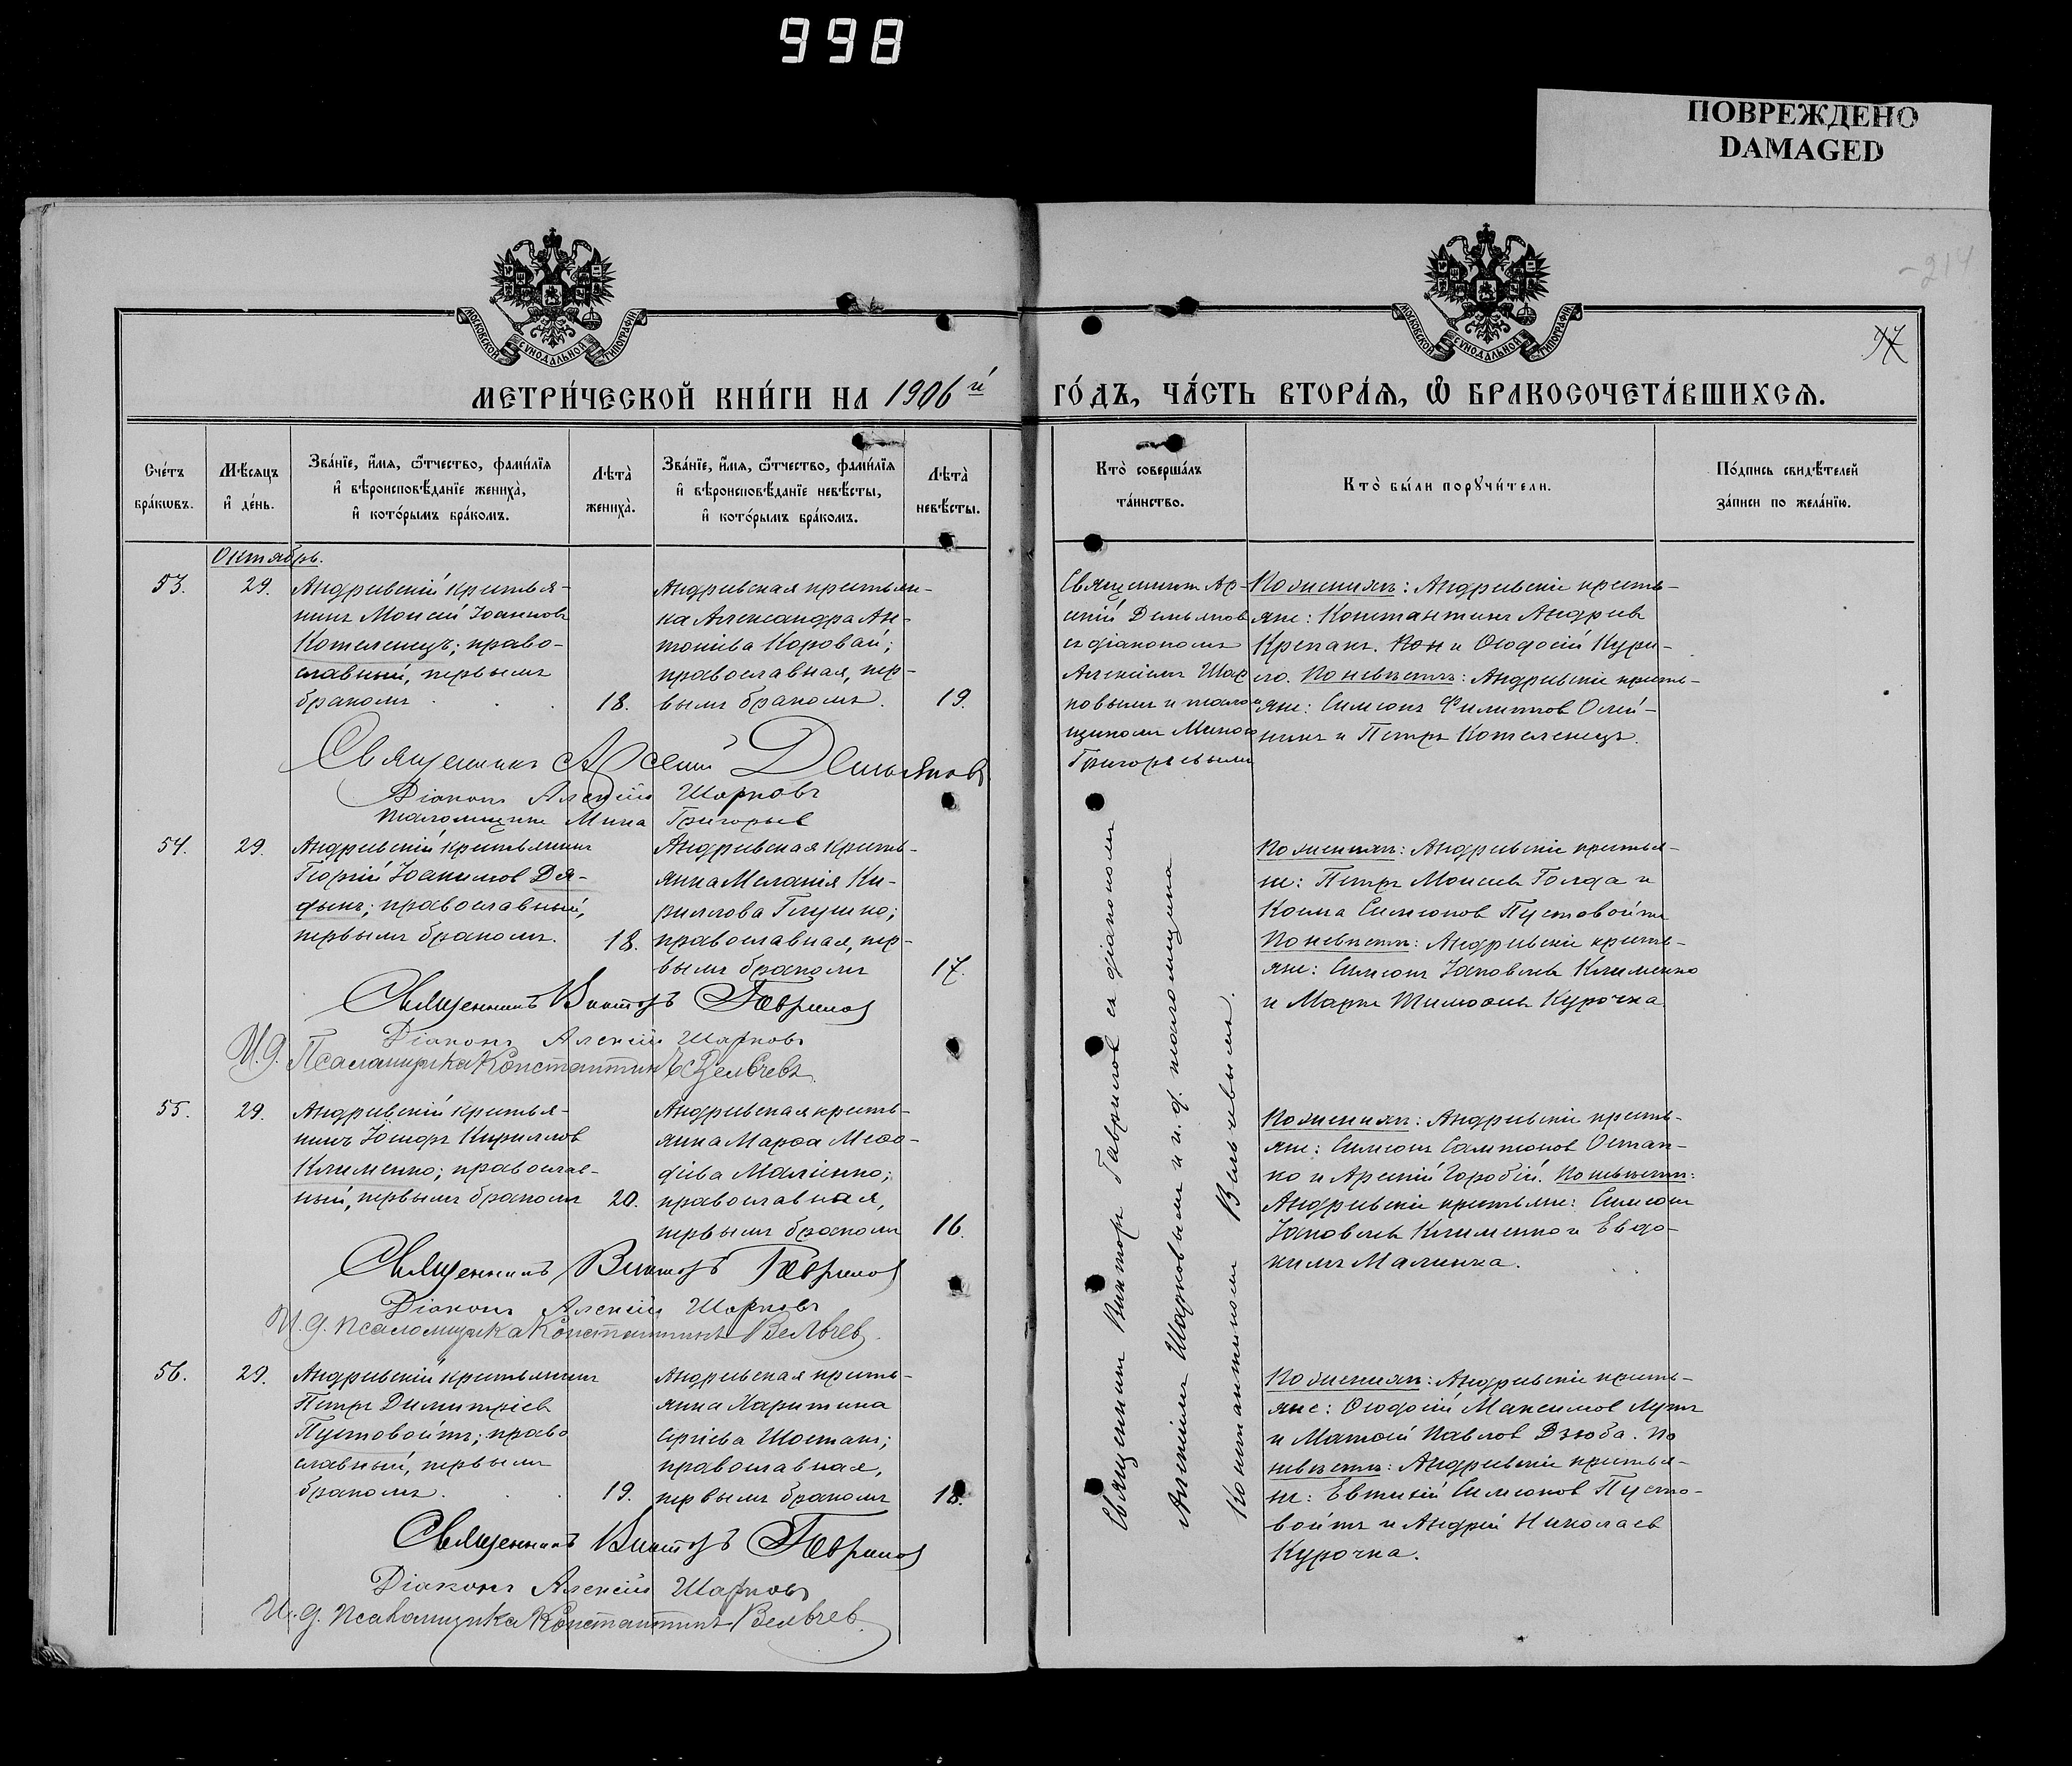 998
ПОВРЕЖДЕНО
DAMAGED
МОСКОВСКОЙ СѴНОДАЛЬНОЙ ТИПОГРАФІИ
МОСКОВСКОЙ СѴНОДАЛЬНОЙ ТИПОГРАФІИ
214
97
МЕТРИ́ЧЕСКОЙ КНИ́ГИ НА 1906й
ГО́ДЪ, ЧА́СТЬ ВТОРА́Ѧ, Ѡ БРАКОСОЧЕТА́ВШИХСѦ.
Сче́тъ
бра́кѡвъ.
Мѣ́сяцъ
и҆ де́нь.
Зва́нїе, и҆́мѧ, ѻ҆́тчество, фами́лїѧ
и҆ вѣроисповѣ́данїе жениха̀,
и҆ кото́рымъ бра́комъ.
Лѣта̀
жениха̀.
Зва́нїе, и҆́мѧ, ѻ҆́тчество, фами́лїѧ
и҆ вѣроисповѣ́данїе невѣ́сты,
и҆ кото́рымъ бра́комъ.
Лѣта̀
невѣ́сты.
Кто̀ соверша́лъ
та́инство.
Кто̀ бы́ли порꙋчи́тели.
По́дпись свидѣ́телей
за́писи по жела́нїю.
Октябрь.
53.
29.
Андреевскій крестья-
нинъ Моисей Іоаннов
Котеленецъ; право-
славный, первымъ
бракомъ
18.
Андреевская крестьян-
ка Александра Ан-
тоніева Коровай;
православная, пер-
вымъ бракомъ.
19.
Священник Ар-
сеній Демьянов
съ діакономъ
Алексіемъ Шар
ковымъ и псало
мщиком Миною
Григорьевымъ
По женихѣ: Андреевскіе кресть-
яне: Константинъ Андреев
Крепакъ и Ѳеодосій Кури-
ло. По невѣстѣ: Андреевскіе кресть-
яне: Симеонъ Филиппов Олей-
никъ и Петръ Котеленецъ.
Священникъ Арсеній Демьяновъ
Діаконъ Алексій Шарковъ
Псаломщикъ Мина Григорьев
54.
29.
Андреевскій крестьянинъ
Георгій Іоакимов Дя-
дынъ; православный,
первымъ бракомъ.
18.
Андреевская кресть-
янка Меланія Ки-
риллова Глушко;
православная, пер-
вымъ бракомъ
17.
По женихѣ: Андреевскіе крестья-
не: Петръ Моисеев Голда и
Косма Симеонов Пустовойтъ
По невѣстѣ: Андреевскіе кресть-
яне: Симеонъ Іаковлев Клименко
и Маркъ Тимоѳеев Курочка.
Священникъ Викторъ Гаврилов
Діаконъ Алексій Шарковъ
И. д. Псаломщика Константинъ Вельчевъ.
55.
29.
Андреевскій крестья-
нинъ Іосифъ Кириллов
Клименко; православ-
ный, первымъ бракомъ
20.
Андреевская кресть-
янка Марѳа Меѳо-
діева Малинко;
православная,
первымъ бракомъ
16.
По женихѣ: Андреевскіе кресть-
яне: Симеонъ Сампсонов Остап-
ко и Арсеній Горобій. По невѣстѣ:
Андреевскіе крестьяне: Симеон
Іаковлев Клименко и Евдо-
кимъ Малинка.
Священникъ Викторъ Гаврилов
Діаконъ Алексій Шарковъ
И. д. псаломщика Константинъ Вельчев.
56.
29.
Андреевскій крестьянинъ
Петръ Димитріев
Пустовойтъ; право
славный, первымъ
бракомъ.
19.
Андреевская кресть-
янка Харитина
Сергіева Шостакъ;
православная,
первымъ бракомъ
18.
По женихѣ: Андреевскіе кресть-
яне: Ѳеодосій Максимов Луть
и Матѳей Павлов Дзюба. По
невѣстѣ: Андреевскіе крестья-
не: Евтихій Симеонов Пусто-
войтъ и Андрей Николаев
Курочка.
Священникъ Викторъ Гаврилов
Діаконъ Алексій Шарковъ
И. д. псаломщика Константинъ Вельчев.
Священник Викторъ Гаврилов съ діакономъ
Алексіемъ Шарковымъ и и. д. псаломщика
Константином Вельчевымъ.